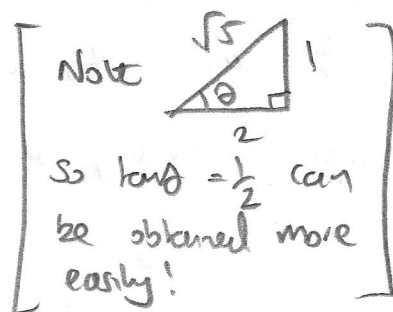 Note √5 1
θ
2
So tanθ = 1/2 can
be obtained more
easily!